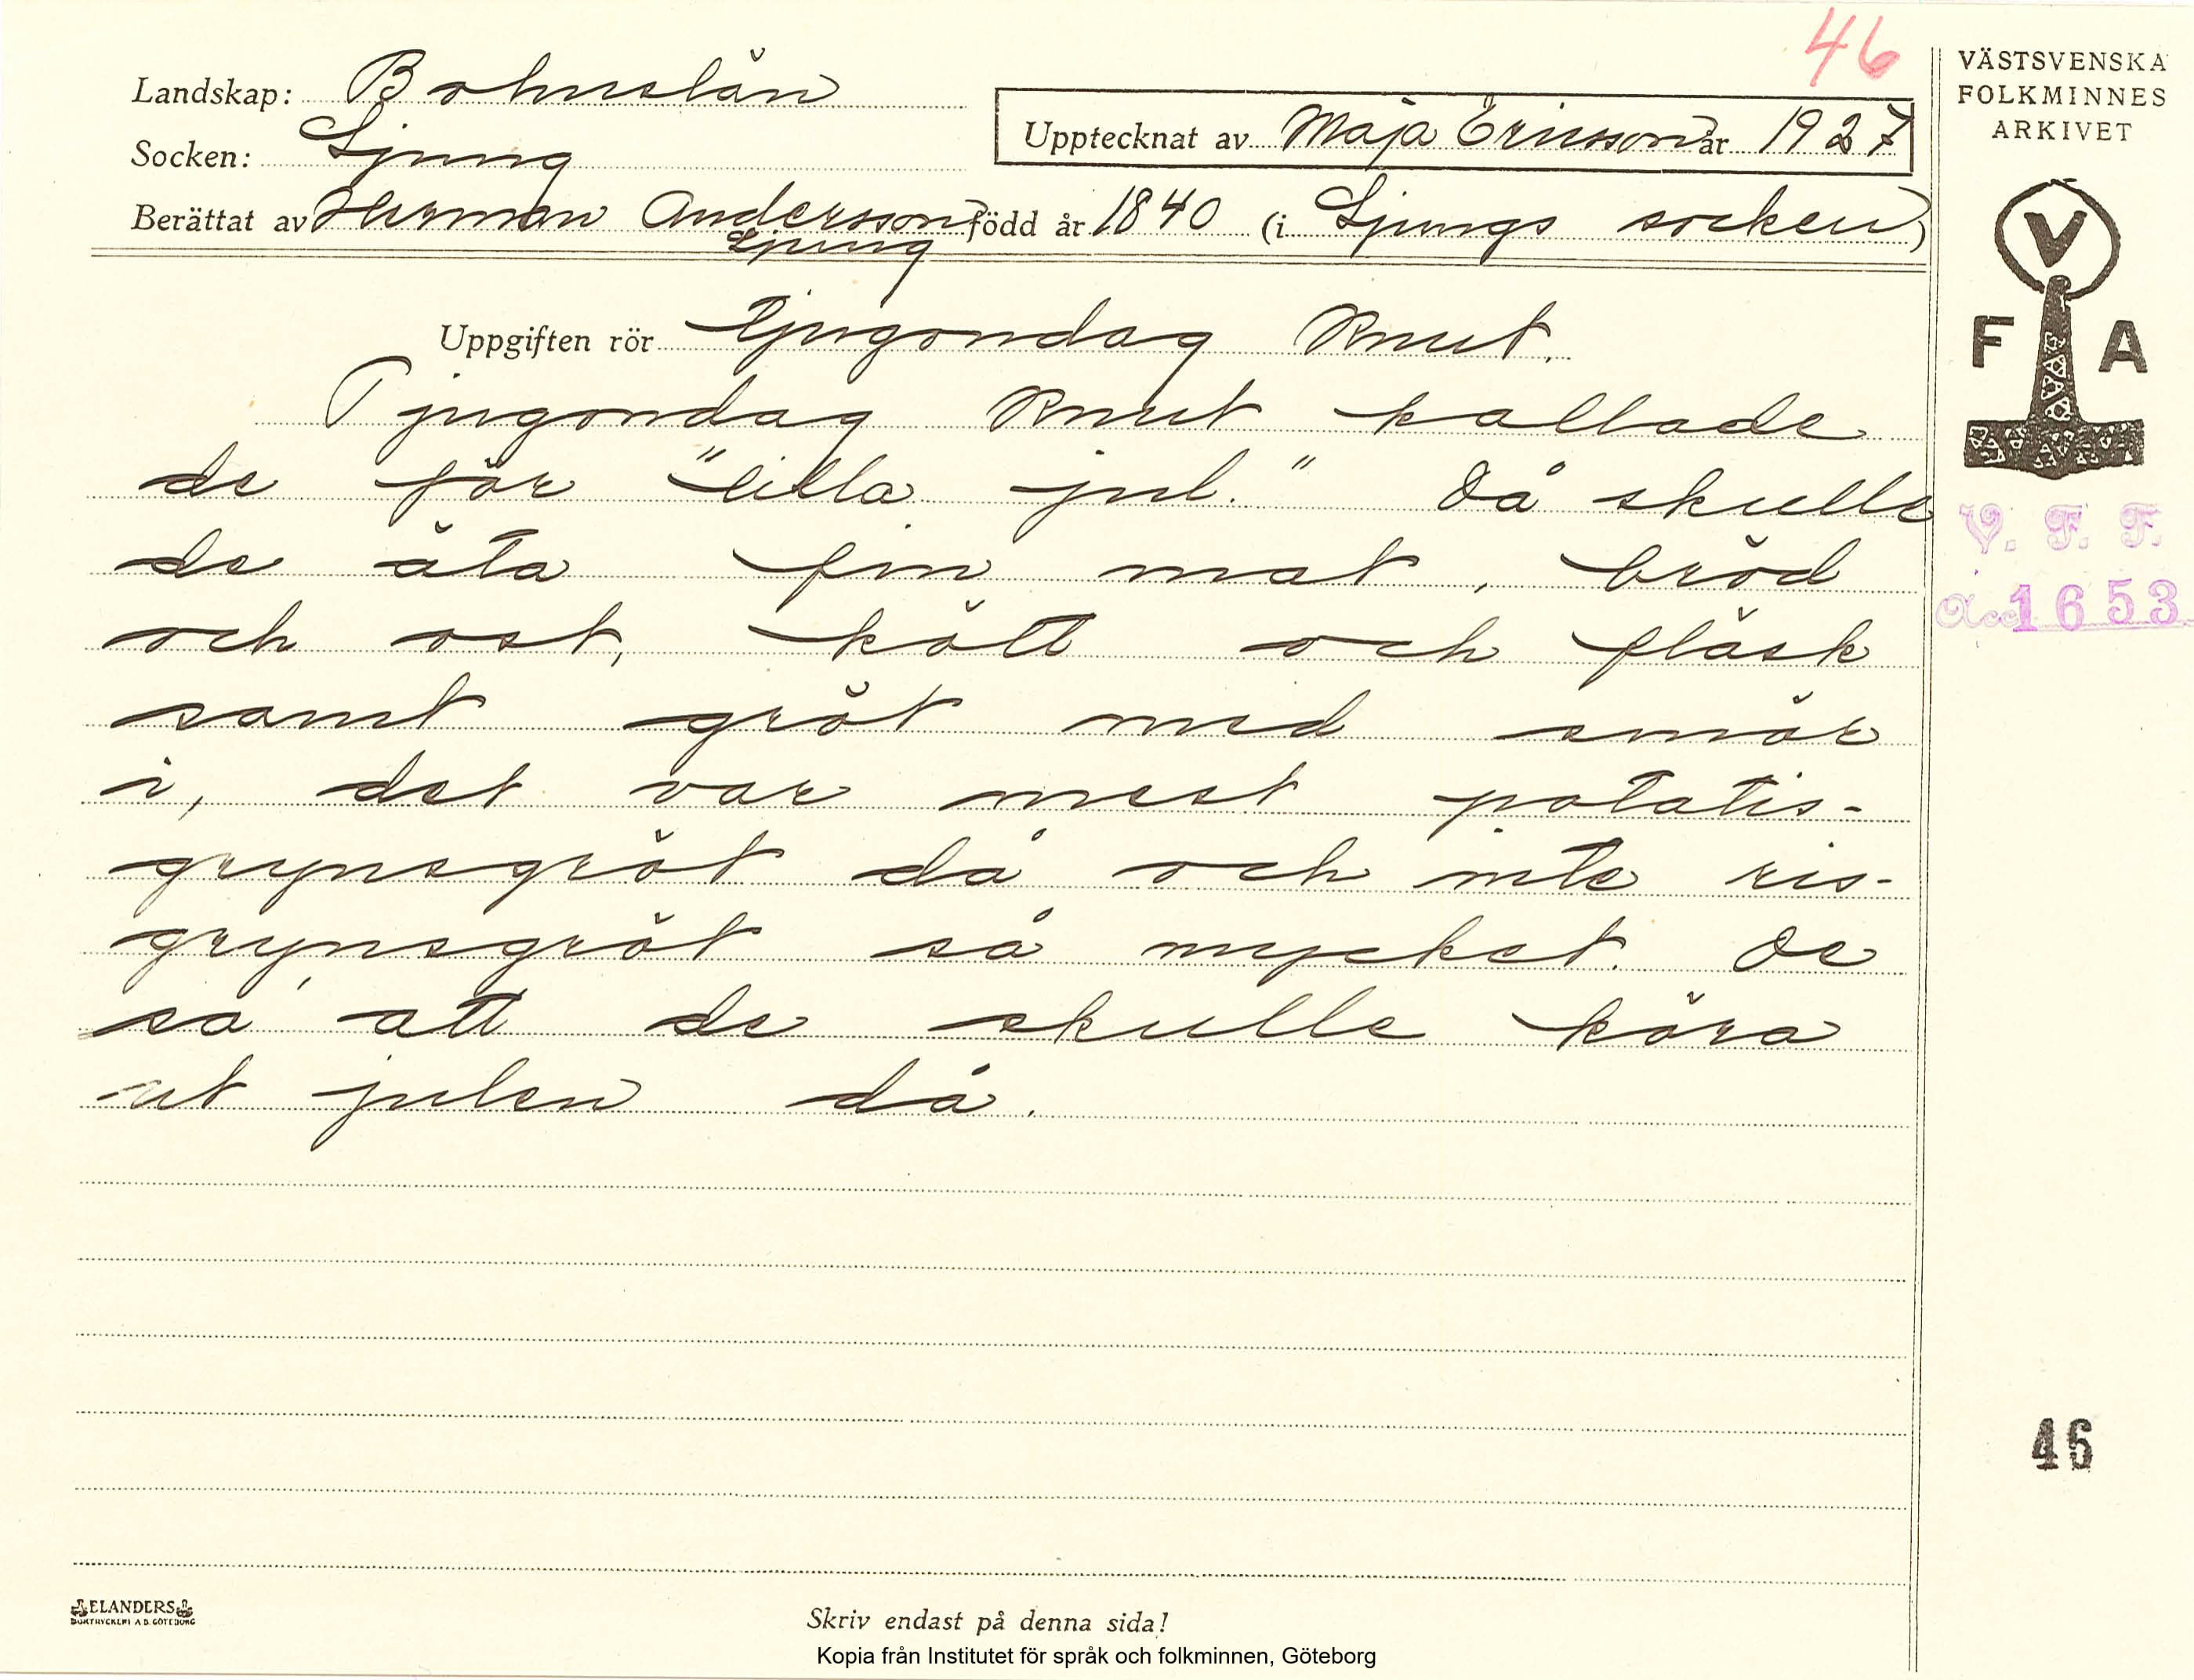 46
Landskap: Bohuslän
Socken: Ljung
Upptecknat av Maja Ericsson år 1927
Berättat av Herman Andersson född år 1840 (i Ljungs socken)
Ljung
Uppgiften rör Tjugondag Knut.
Tjugondag Knut kallade
de för "lilla jul." Då skulle
de äta fin mat, bröd
och ost, kött och fläsk
samt gröt med smör
i, det var mest potatis-
grynsgröt då och inte ris-
grynsgröt så mycket. De
sa' att de skulle köra
ut julen då.
VÄSTSVENSKA
FOLKMINNES
ARKIVET
V
F A
V. F. F.
Acc 1653
46
ELANDERS
BOKTRYCKERI A.B. GÖTEBORG
Skriv endast på denna sida!
Kopia från Institutet för språk och folkminnen, Göteborg